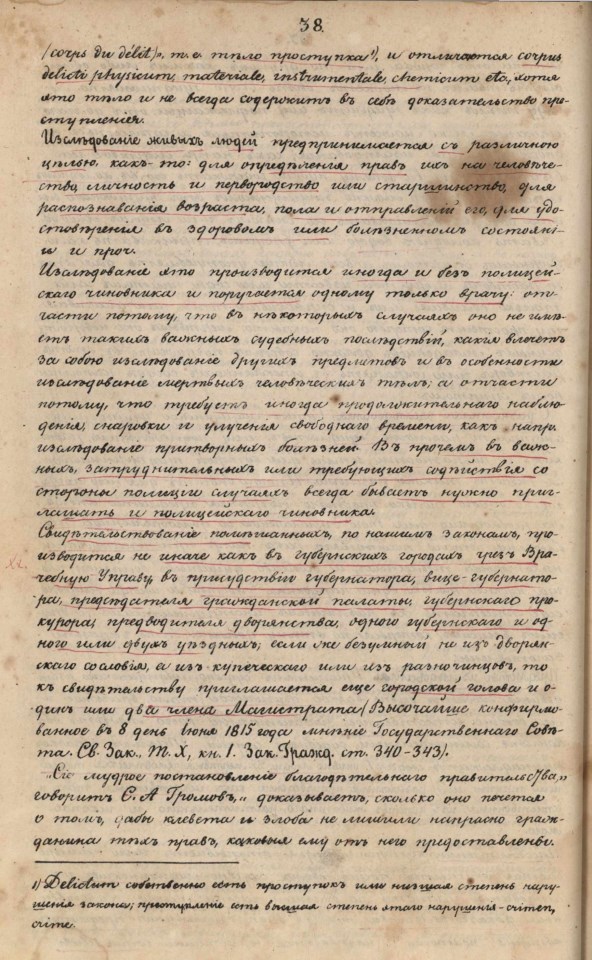 38.
(corps du délit)», т. е. тѣло проступка¹), и отличается corpus
delicti physicum, materiale, instrumentale, chemicum etc., хотя
это тѣло и не всегда содержитъ въ себѣ доказательство про-
ступленія.
Изслѣдованіе живыхъ людей предпринимается съ различною
цѣлью, какъ-то: для опредѣленія правъ ихъ на человѣче-
ство, личность и первородство или старшинство, для
распознаванія возраста, пола и отправленій его, для удо-
стовѣренія въ здоровомъ или болѣзненномъ состояні-
и и проч.
Изслѣдованіе это производится иногда и безъ полицей-
скаго чиновника и поручается одному только врачу: от-
части потому, что въ нѣкоторыхъ случаяхъ оно не имѣ-
етъ такихъ важныхъ судебныхъ послѣдствій, какія влечетъ
за собою изслѣдованіе другихъ предметовъ и въ особенности
изслѣдованіе мертвыхъ человѣческихъ тѣлъ; а отчасти
потому, что требуетъ иногда продолжительнаго наблю-
денія, снаровки и улученія свободнаго времени, какъ напр.
изслѣдованіе притворныхъ болѣзней. Въ прочемъ въ важ-
ныхъ, затруднительныхъ или требующихъ содѣйствія со
стороны полиціи случаяхъ всегда бываетъ нужно приг-
лашать и полицейскаго чиновника.
Свидѣтельствованіе помѣшанныхъ, по нашимъ законамъ, про-
изводится не иначе какъ въ губернскихъ городахъ чрезъ Вра-
чебную Управу, въ присудствіи губернатора, вице-губернато-
ра, предсѣдателя гражданской палаты, губернскаго про-
курора, предводителя дворянства, одного губернскаго и од-
ного или двухъ уѣздныхъ; если же безумный не изъ дворян-
скаго сословія, а изъ купеческаго или изъ разночинцовъ, то
къ свидѣтельству приглашается еще городской голова и о-
динъ или два члена Магистрата (Высочайше конфирмо-
ванное въ 8 день Іюня 1815 года мнѣніе Государственнаго Совѣ-
та. Св. Зак., Т. X, кн. I. Зак. Гражд. ст. 340–343).
„Сіе мудрое постановленіе благодѣтельнаго правительства,"
говоритъ С. А Громовъ, „доказываетъ, сколько оно печется
о томъ, дабы клевета и злоба не лишили напрасно граж-
данина тѣхъ правъ, каковыя ему отъ него предоставлены.
1) Delictum собственно есть проступокъ или низшая степень нару-
шенія закона; преступленіе есть высшая степень этаго нарушенія - crimen,
crime.